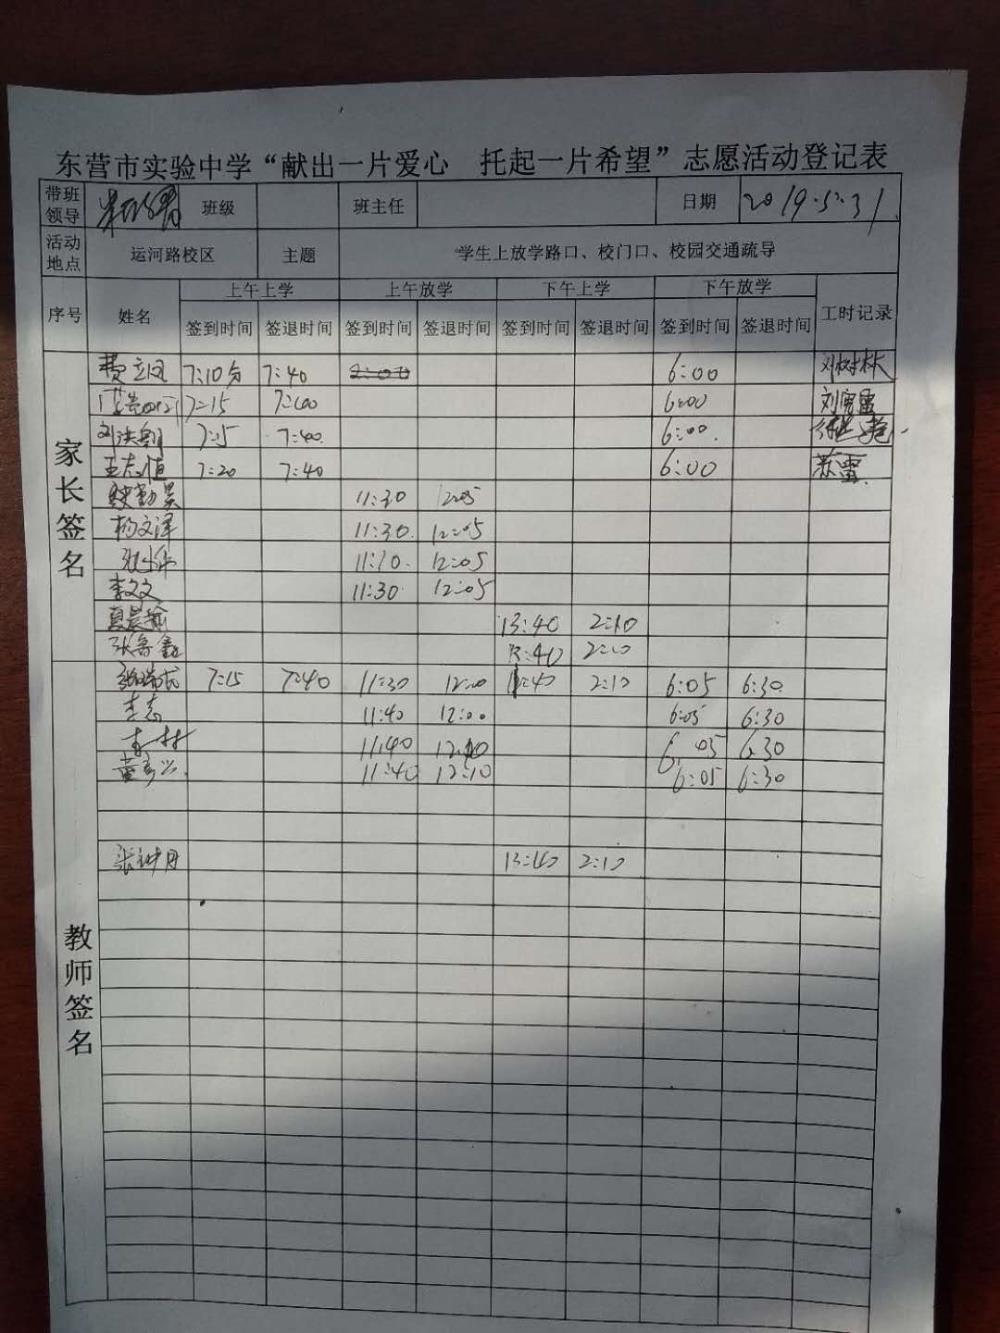 东营市实验中学“献出一片爱心 托起一片希望”志愿活动登记表
带班领导 班级 班主任 日期 2019.5.31.
活动地点 运河路校区 主题 学生上放学路口、校门口、校园交通疏导
序号 姓名 上午上学 上午放学 下午上学 下午放学 工时记录
签到时间 签退时间 签到时间 签退时间 签到时间 签退时间 签到时间 签退时间
家长签名
费立国 7:10分 7:40 6:00 邓树林
7:15 6:00 刘雪雷
刘洪朝 7:15 7:40 6:00
王志恒 7:20 7:40 6:00 苏雷
魏勤昊 11:30 12:05
杨文泽 11:30 12:05
11:10 12:05
李文文 11:30 12:05
夏晨瑜 13:40 2:10
张鲁鑫 13:40 2:10
教师签名
张瑞龙 7:15 7:40 11:30 12:00 2:10 6:05 6:30
李志 11:40 12:00 6:05 6:30
李林 11:40 12:10 6:05 6:30
董彦兴 11:40 12:10 6:05 6:30
张钟月 13:40 2:10